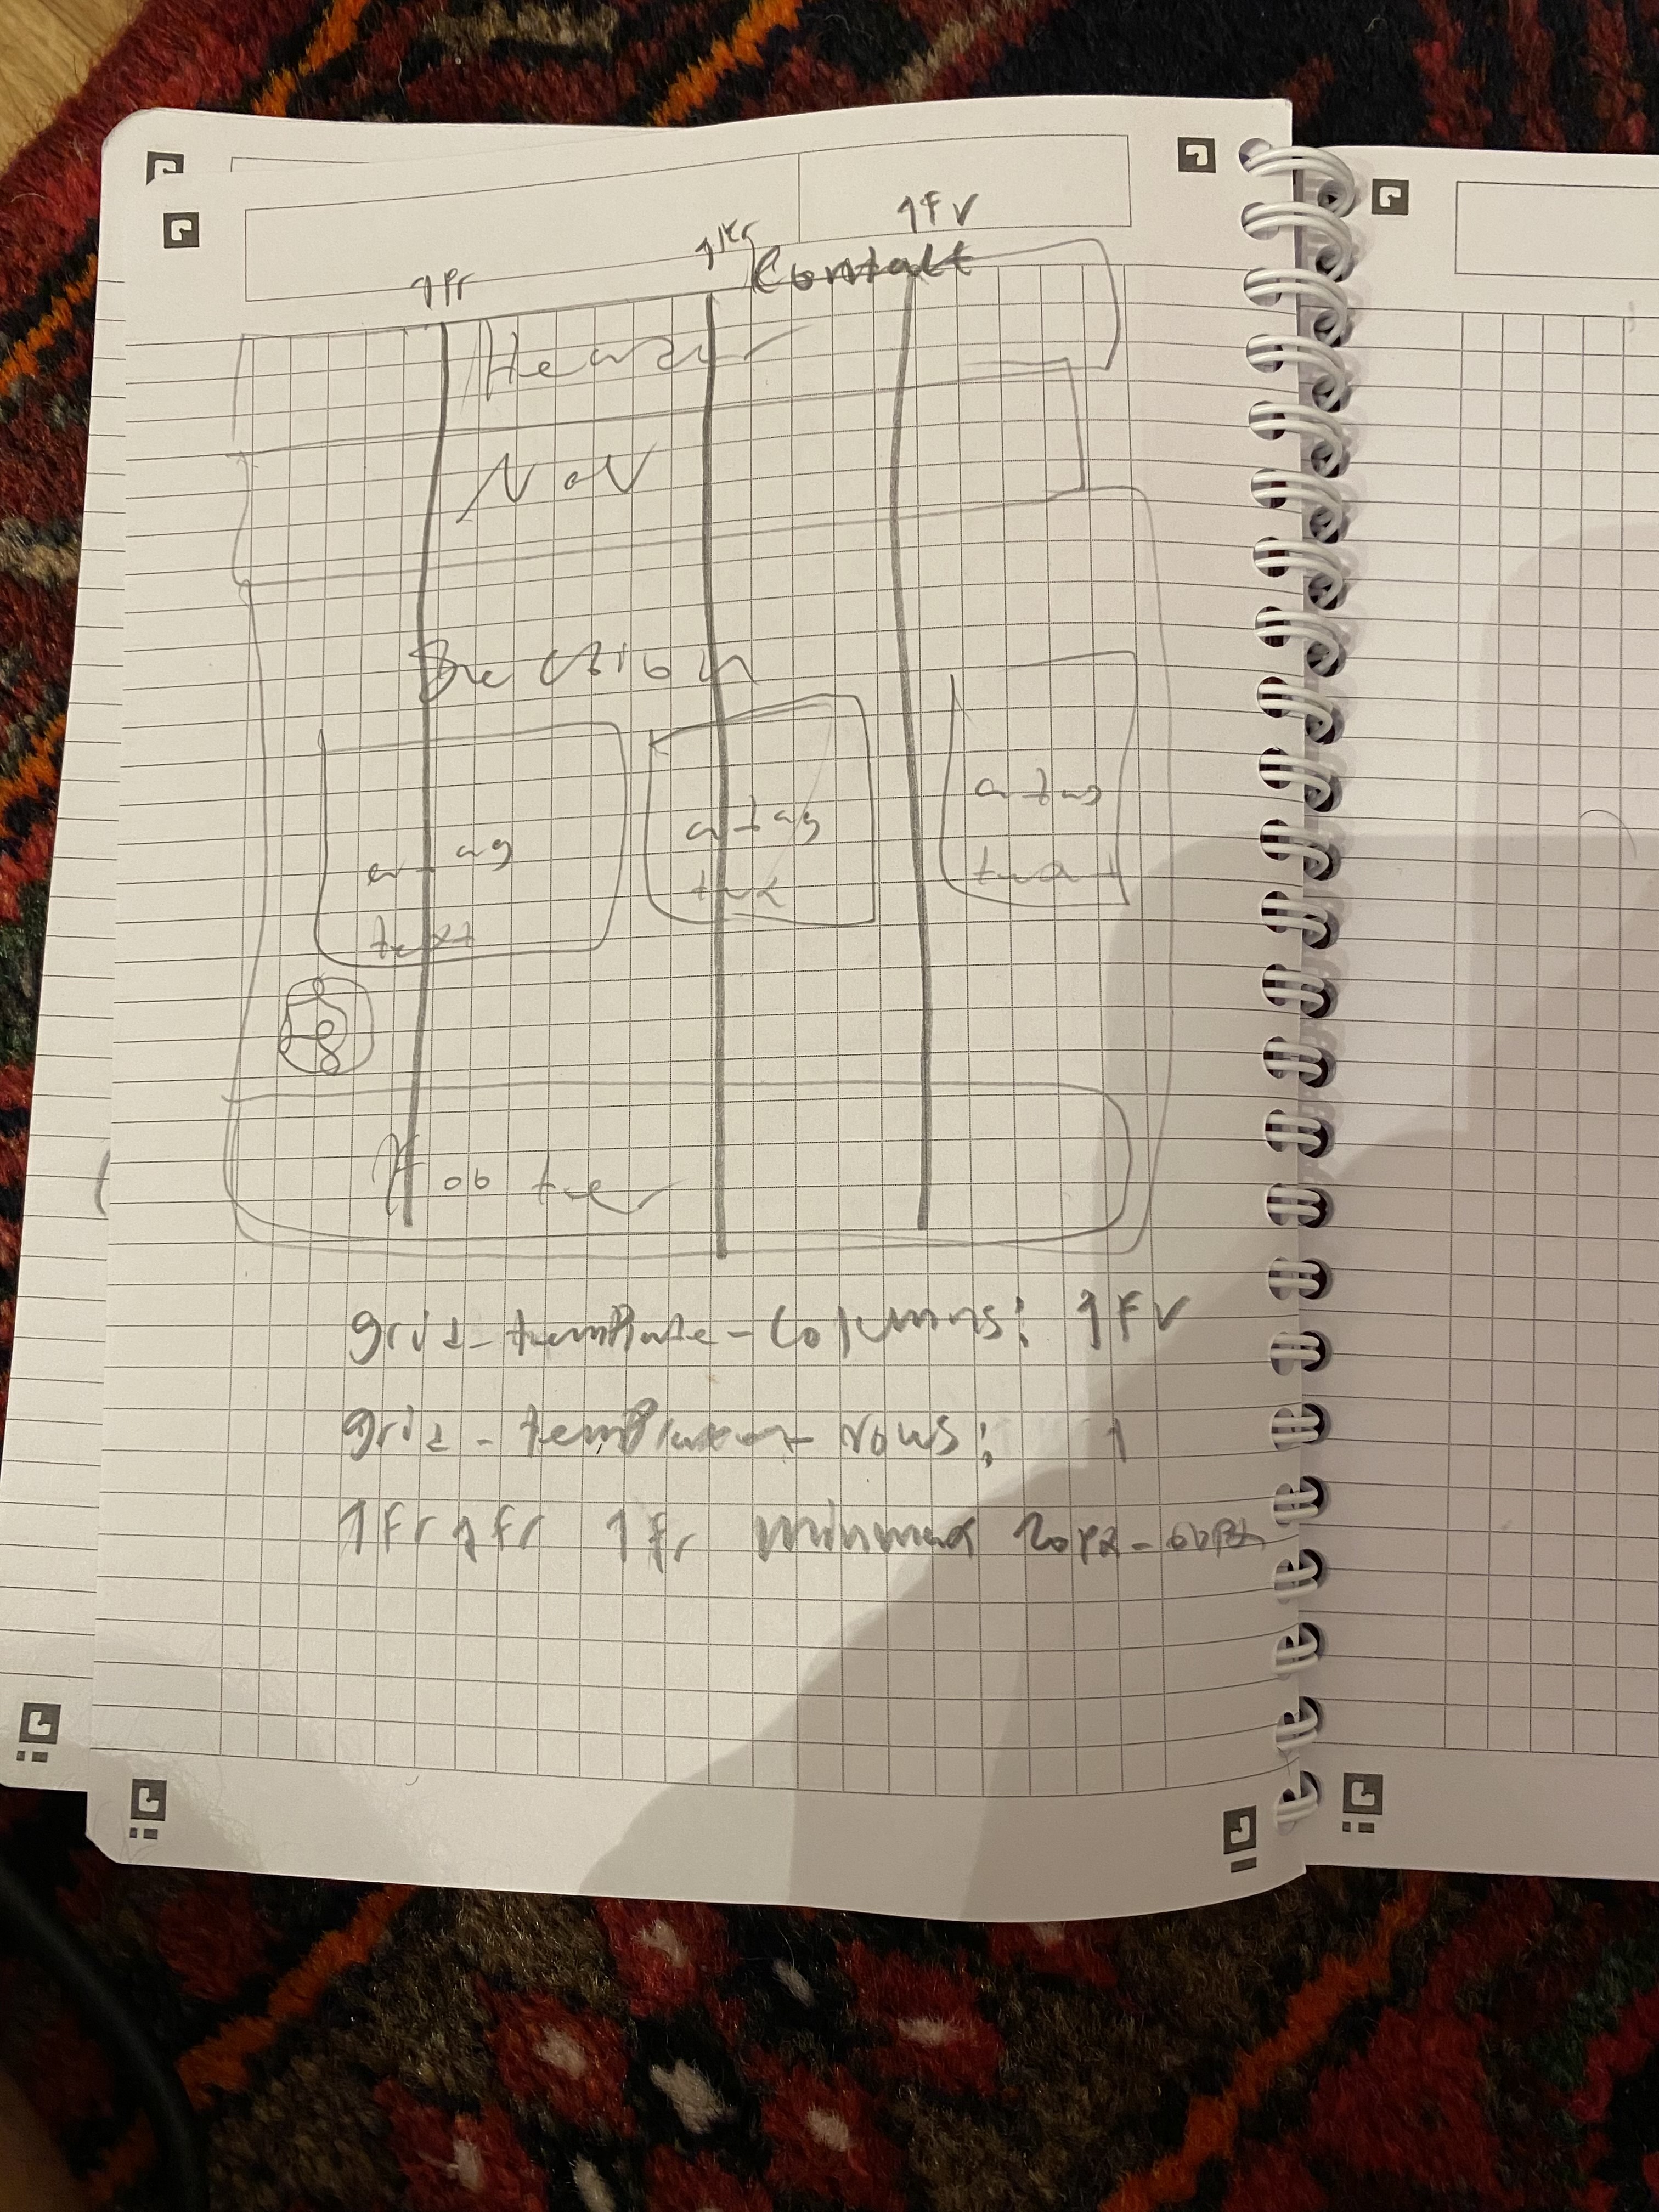 1Fr
1Fr
1Fr
Contakt
Header
Nav
Section
a-tag
text
a-tag
a-tag
Footer
grid-template-columns: 1Fr
grid-template-rows: 1
1Fr 1fr 1fr minmax 20px-60px